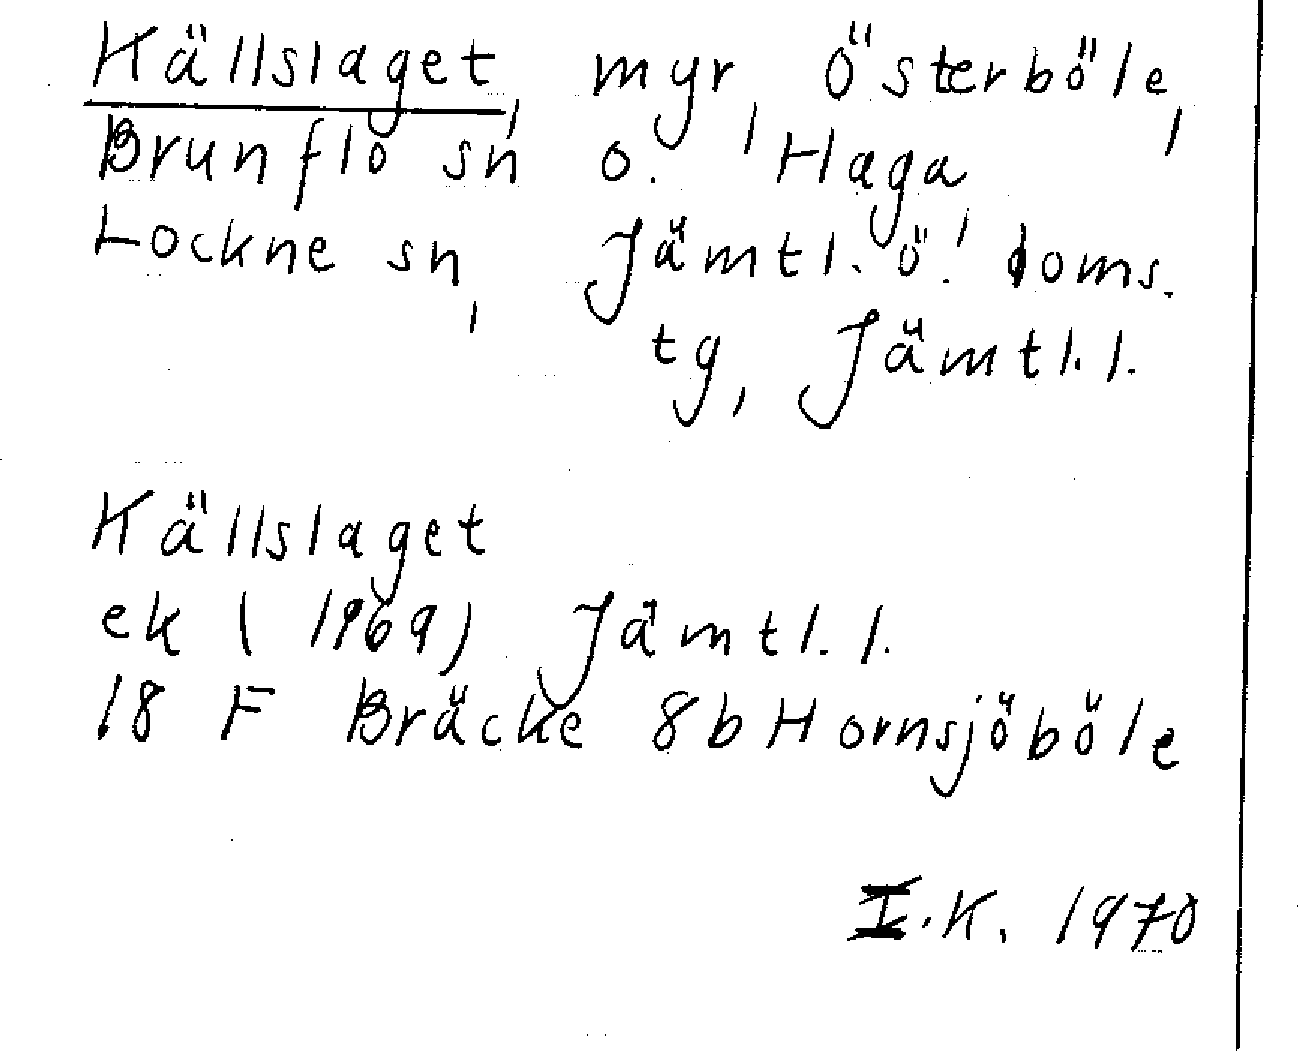 Källslaget, myr, Österböle,
Brunflo sn o. Haga,
Lockne sn, Jämtl. ö. doms.
tg, Jämtl. l.
Källslaget
ek (1969) Jämtl. l.
18 F Bräcke 8b Hornsjöböle
I.K. 1970